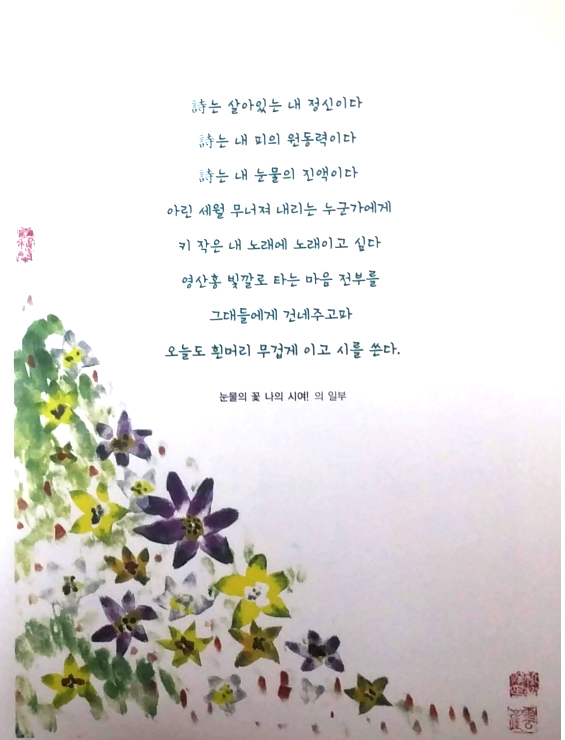 詩는 살아있는 내 정신이다
詩는 내 피의 원동력이다
詩는 내 눈물의 진액이다
아린 세월 무너져 내리는 누군가에게
키 작은 내 노래에 노래이고 싶다
영산홍 빛깔로 타는 마음 전부를
그대들에게 건네주고파
오늘도 흰머리 무겁게 이고 시를 쓴다.
눈물의 꽃 나의 시여! 의 일부